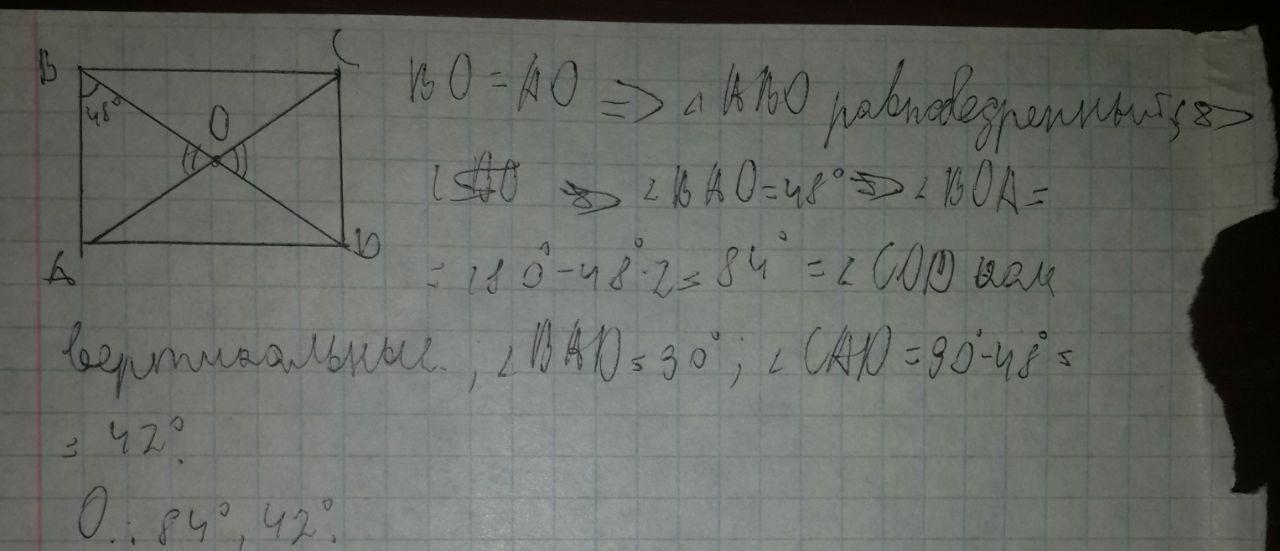 B
C
48°
O
A
D
BO = AO => ∠ ABO равнобедренный =>
=> ∠BAO = 48° => ∠BOA =
= 180° - 48° · 2 = 84° = ∠COD как
вертикальные ; ∠BAD = 90° ; ∠CAD = 90° - 48° =
= 42°.
О.: 84°, 42°.